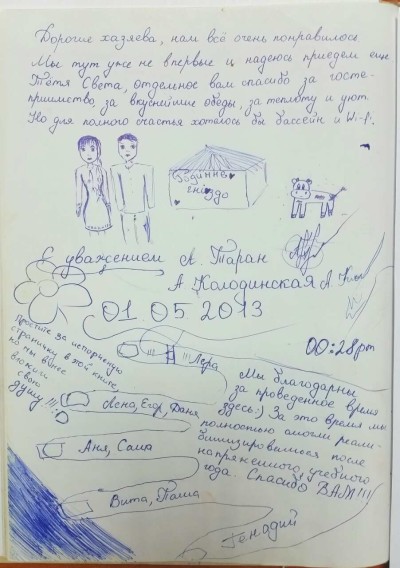 Дорогие хазяева, нам всё очень понравилось.
Мы тут уже не впервые и надеюсь приедем еще
Тётя Света, отдельное вам спасибо за госте-
приимство, за вкуснейшие обеды, за теплоту и уют.
Но для полного счастья хотелось бы бассейн и Wi-fi.
Родинне
гніздо
С уважением А. Таран
А. Колодинская
01.05.2013
00:28pm
Простите за испорченую
страничку в этой книге,
но мы в нее
вложили
свою
душу!!!
!!! Лера
Мы благодарны
за проведенное время
здесь:) За это время мы
полностью смогли реаби-
билизироваться после
напряженного учебного
года. Спасибо ВАМ!!!
Ясна, Егор, Даня
Аня, Саша
Вита, Паша
Генадий